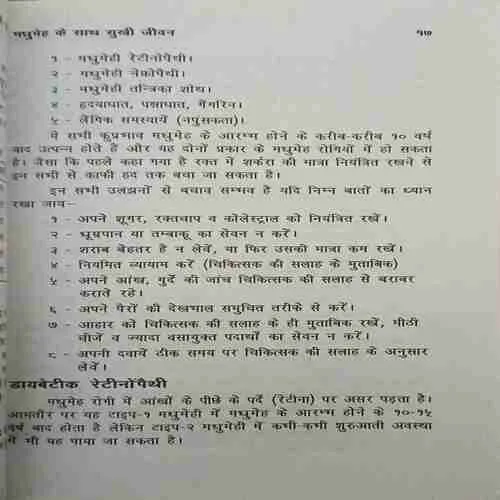 मधुमेह के साथ सुखी जीवन १७
१ - मधुमेही रेटीनोपैथी।
२ - मधुमेही नेफ्रोपैथी।
३ - मधुमेही तन्त्रिका शोथ।
४ - हृदयाघात, पक्षाघात, गैंगरिन।
५ - लैंगिक समस्यायें (नपुसकता)।
ये सभी कुप्रभाव मधुमेह के आरम्भ होने के करीब-करीब १० वर्ष
बाद उत्पन्न होते हैं और यह दोनों प्रकार के मधुमेह रोगियों में हो सकता
है। जैसा कि पहले कहा गया है रक्त में शर्करा की मात्रा नियंत्रित रखने से
इन सभी से काफी हद तक बचा जा सकता है।
इन सभी उलझनों से बचाव सम्भव है यदि निम्न बातों का ध्यान
रखा जाय-
१ - अपने शूगर, रक्तचाप व कोलेस्ट्राल को नियंत्रित रखें।
२ - धूम्रपान या तम्बाकू का सेवन न करें।
३ - शराब बेहतर है न लेवें, या फिर उसकी मात्रा कम रखें।
४ - नियमित व्यायाम करें (चिकित्सक की सलाह के मुताबिक)
५ - अपने आंख, गुर्दे की जांच चिकित्सक की सलाह से बराबर
कराते रहे।
६ - अपने पैरों की देखभाल समुचित तरीके से करें।
७ - आहार को चिकित्सक की सलाह के ही मुताबिक रखें, मीठी
चीजें व ज्यादा वसायुक्त पदार्थों का सेवन न करें।
८ - अपनी दवायें ठीक समय पर चिकित्सक की सलाह के अनुसार
लेवें।
डायबेटीक रेटीनोपैथी
मधुमेह रोगी में आंखों के पीछे के पर्दे (रेटीना) पर असर पड़ता है।
आमतौर पर यह टाइप-१ मधुमेही में मधुमेह के आरम्भ होने के १०-१५
वर्ष बाद होता है लेकिन टाइप-२ मधुमेही में कभी-कभी शुरुआती अवस्था
में भी यह पाया जा सकता है।